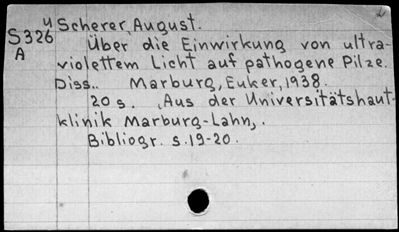 u Scherer, August.
S326
A
Über die Einwirkung von ultra-
violettem Licht auf pathogene Pilze.
Diss.. Marburg, Euker, 1938.
20 s. „Aus der Universitätshaut-
klinik Marburg-Lahn„.
Bibliogr. s.19-20.